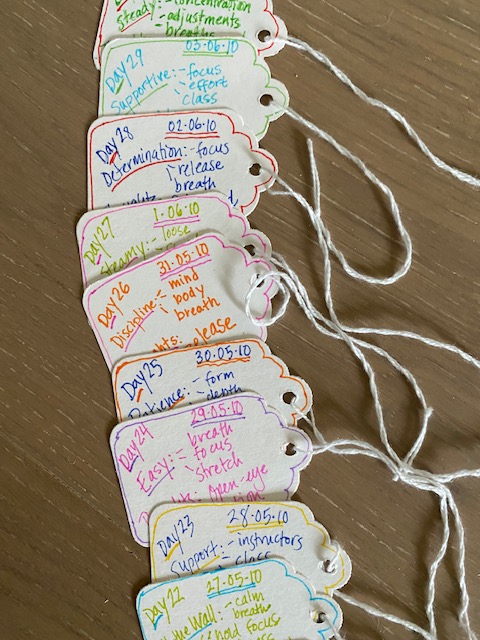 Steady:- concentration
- adjustments
breaths
03.06.10
Day 29
Supportive:- focus
- effort
class
02.06.10
Day 28
Determination:- focus
- release
breath
1.06.10
Day 27
Steamy:- loose
31.05.10
Day 26
Discipline:- mind
- body
breath
release
30.05.10
Day 25
Patience:- form
- depth
29.05.10
Day 24
Easy:- breath
- focus
- stretch
Open-eye
28.05.10
Day 23
Support:- instructors
- class
27.05.10
Day 22
the Wall:- calm
- breath
hold focus